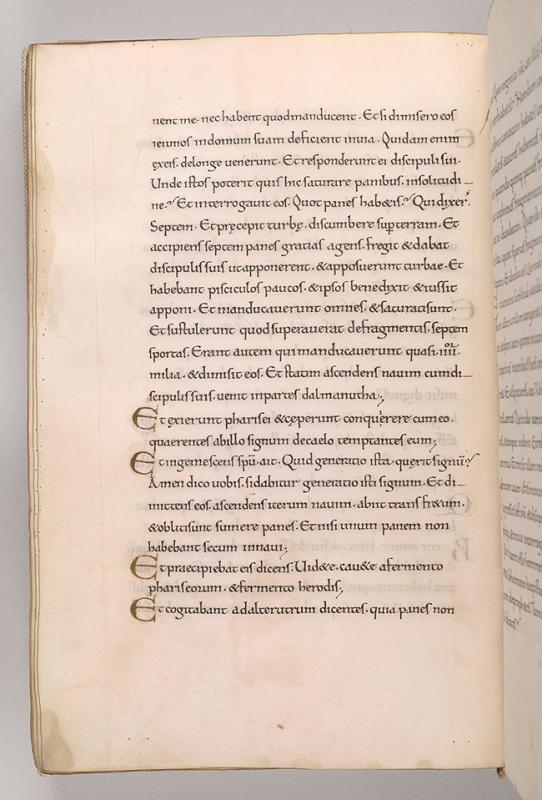 nent me. nec habent quod manducent. Et si dimisero eos
ieiunos in domum suam deficient in uia. Quidam enim
ex eis. de longe uenerunt. Et responderunt ei discipuli sui.
Unde istos poterit quis hic saturare panibus. in solitudi
ne? Et interrogauit eos. Quot panes hab&is? Qui dixer̄.
Septem. Et pręcepit turbę. discumbere sup̄ terram. Et
accipiens septem panes gratias agens. fregit & dabat
discipulis suis ut apponerent. & apposuerunt turbae. Et
habebant pisciculos paucos. & ipsos benedixit & iussit
apponi. Et manducauerunt omnes. & saturati sunt.
Et sustulerunt quod superauerat de fragmentis. septem
sportas. Erant autem qui manducauerunt quasi. iiii.
milia. & dimisit eos. Et statim ascendens nauim cum di
scipulis suis. uenit in partes dalmanutha;
Et exierunt pharisei & cęperunt conquirere cum eo.
quaerentes ab illo signum de caelo temptantes eum;
Et ingemescens sp̄u. ait. Quid generatio ista. quęrit signū?
Amen dico uobis. si dabitur generatio isti signum. Et di
mittens eos. ascendens iterum nauim. abiit trans fr&um.
& obliti sunt sumere panes. Et nisi unum panem non
habebant secum in naui;
Et praecipiebat eis dicens. Uid&e. cau&e a fermento
phariseorum. & fermento herodis;
Et cogitabant ad alterutrum dicentes. quia panes non